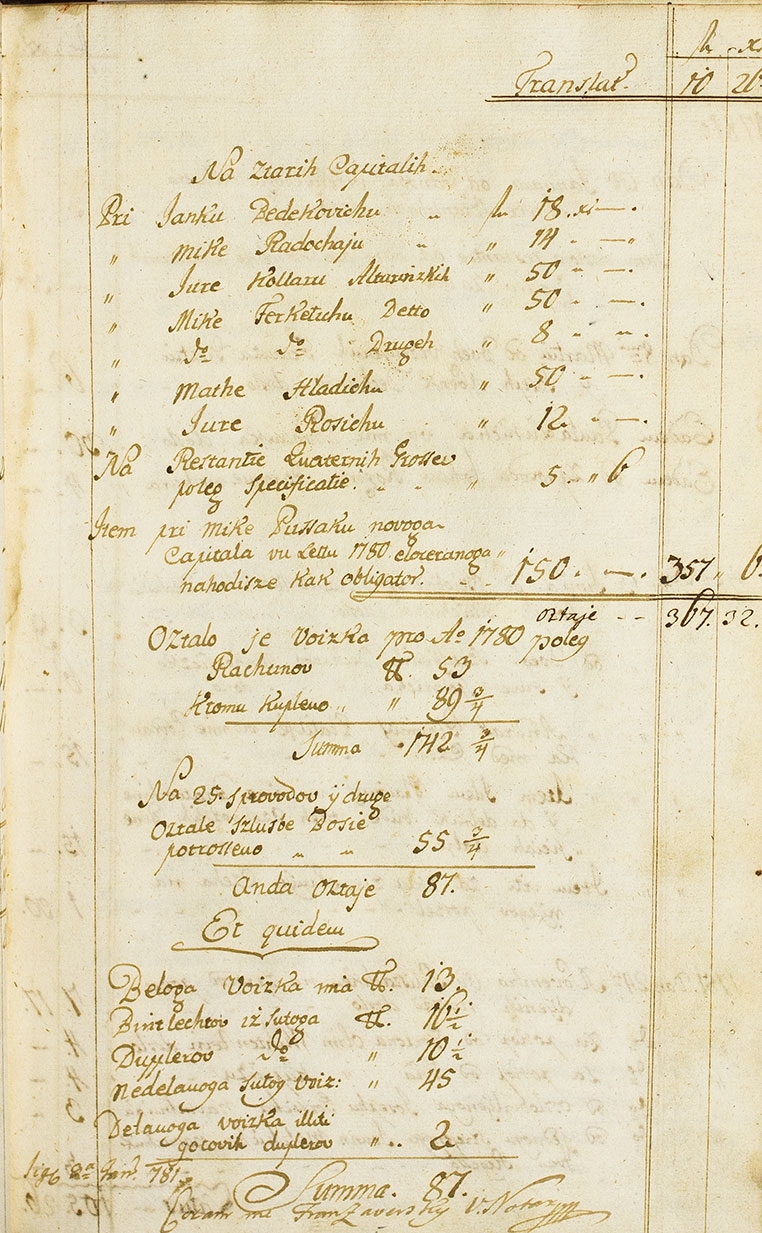 fl xr
Translat. 10 26
Na ztarih Capitalih.
Pri Janku Bedekovichu „ fl 18. xr —.
„ Mike Radochaju „ „ 14 „ —„
„ Jure Kollaru Altarizkih „ 50 „ —.
„ Mike Ferketichu Detto „ 50 „ —.
„ do do Drugeh „ 8 „ „.
„ Mathe Hladichu „ 50 „ —.
„ Jure Rosichu „ 12. „ —.
Na Restantie Quaternih Grossev
poleg specificatie. „ „ „ 5. „ 6
Item pri Mike Pussaku novoga
Capitala vu Lettu 1780
nahodisze kak obligator. „ „ 150 „ —. 357 „ 6.
oztaje — — 367. 32.
Oztalo je Voizka pro Ao 1780 poleg
Rachunov ℔. 53
Ktomu kupleno „ „ 89 3/4
Summa . 142 3/4
Na 25. sprovodov ÿ druge
Oztale szlusbe Bosie
potrosseno „ „ 55 3/4
Anda oztaje 87.
Et quidem
Beloga Voizka ima ℔. 13.
Bintlechtov iz sutoga ℔. 16 1/2
Duplerov do „ 10 1/2
Nedelanoga sutog voiz: „ 45
Delanoga voizka illiti
gotovih duplerov „ .. 2.
Sig 6 8a Jan. 781.
Summa. 87.
Coram me Fran V. Notar